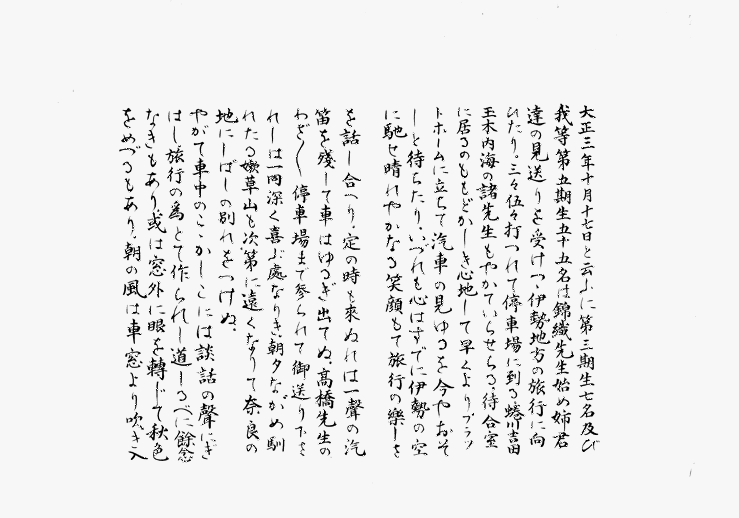 大正三年十月十七日と云ふに第三期生七名及び
我等第五期生五十五名は錦織先生始め姉君
達の見送りを受けつゝ伊勢地方の旅行に向
ひたり。三々伍々打つれて停車場に到る蜷川吉田
玉木内海の諸先生もやがていらせらる、待合室
に居るのももどかしき心地して早くよりプラッ
トホームに立ちて汽車の見ゆるを今やおそ
しと待ちたり、いづれも心はすでに伊勢の空
に馳せ晴れやかなる笑顔もて旅行の樂しさ
を話し合へり、定の時も來ぬれは一聲の汽
笛を殘して車はゆるぎ出でぬ、高橋先生の
わざ〳〵停車場まで參られて御送り下さ
れしは一同深く喜ぶ處なりき、朝夕ながめ馴
れたる嫩草山も次第に遠くなりて奈良の
地にしばしの別れをつけぬ、
やがて車中のこゝかしこには談話の聲にぎ
はし旅行の爲とて作られし道しるべに餘念
なきもあり、或は窓外に眼を轉じて秋色
をめづるもあり、朝の風は車窓より吹き入